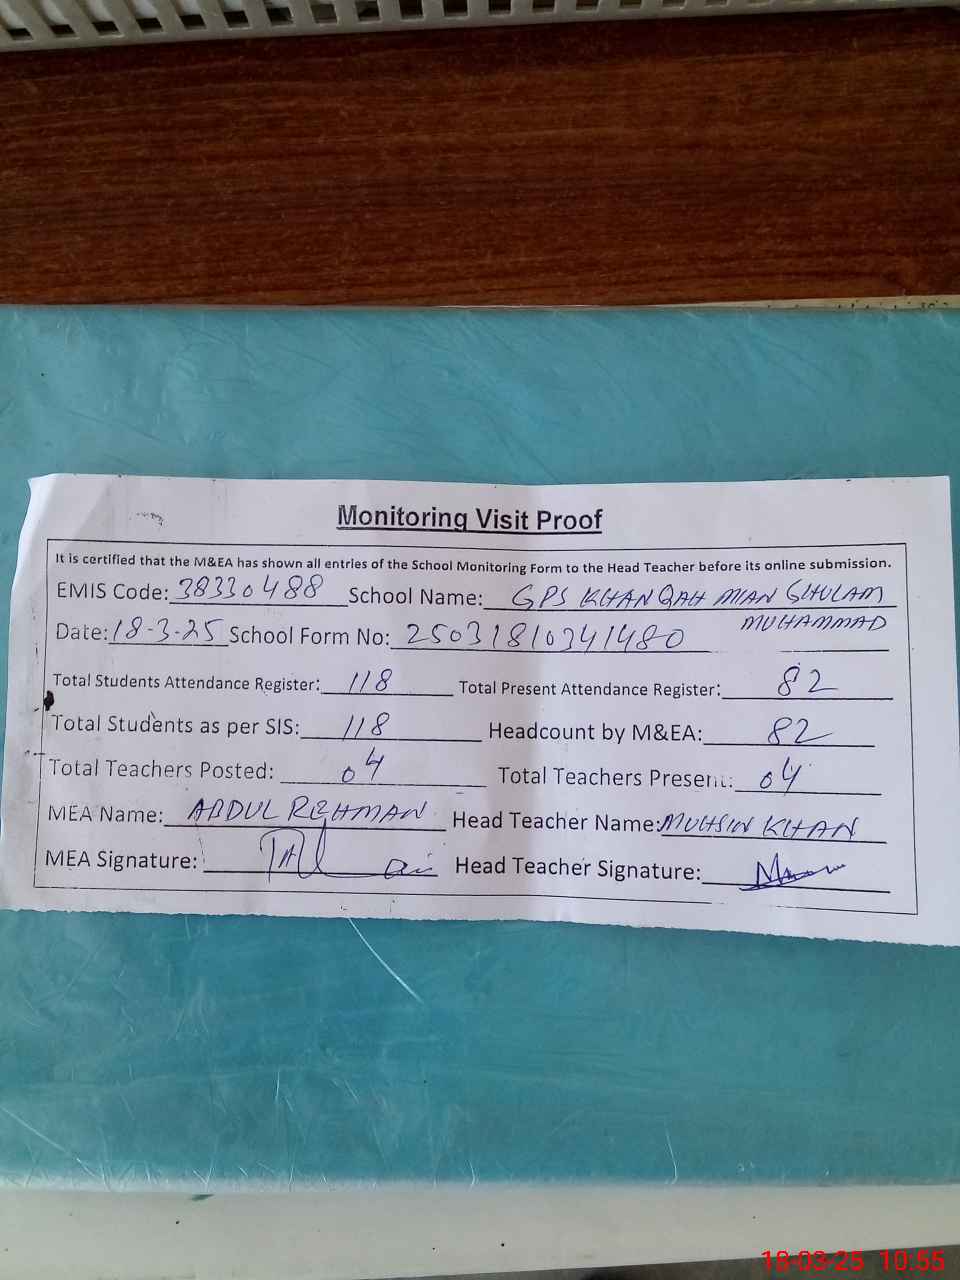 Monitoring Visit Proof
It is certified that the M&EA has shown all entries of the School Monitoring Form to the Head Teacher before its online submission.
EMIS Code: 38330488 School Name: GPS KHANQAH MIAN GHULAM
MUHAMMAD
Date: 18-3-25 School Form No: 25031810341480
Total Students Attendance Register: 118 Total Present Attendance Register: 82
Total Students as per SIS: 118 Headcount by M&EA: 82
Total Teachers Posted: 04 Total Teachers Present: 04
MEA Name: ABDUL REHMAN Head Teacher Name: MUHSIN KHAN
MEA Signature: Head Teacher Signature:
18-03-25 10:55